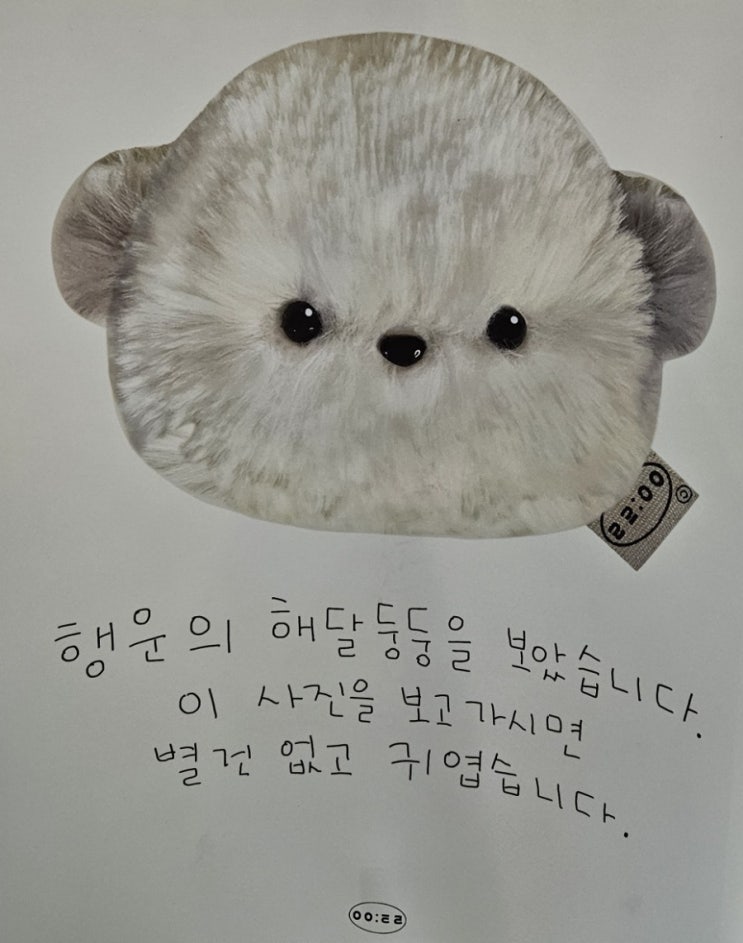 22:00
행운의 해달둥둥을 보았습니다.
이 사진을 보고가시면
별건 없고 귀엽습니다.
00:22